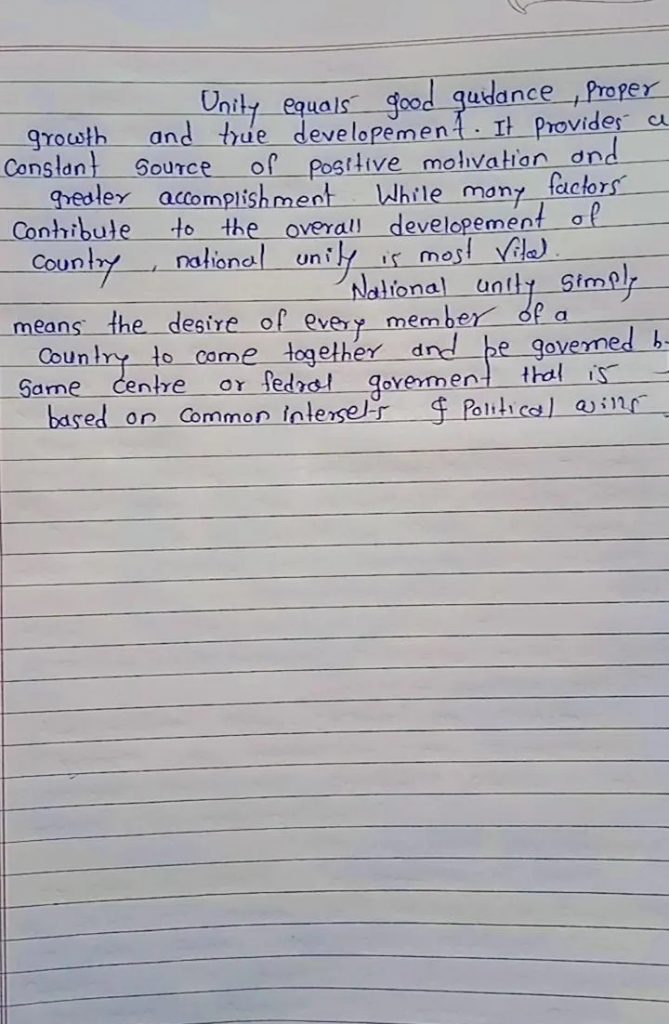 Unity equals good guidance, proper
growth and true developement. It provides a
constant source of positive motivation and
greater accomplishment. While many factors
contribute to the overall developement of
country, national unity is most vital.
National unity simply
means the desire of every member of a
country to come together and be governed b
same centre or fedral goverment that is
based on common intersets & political aims